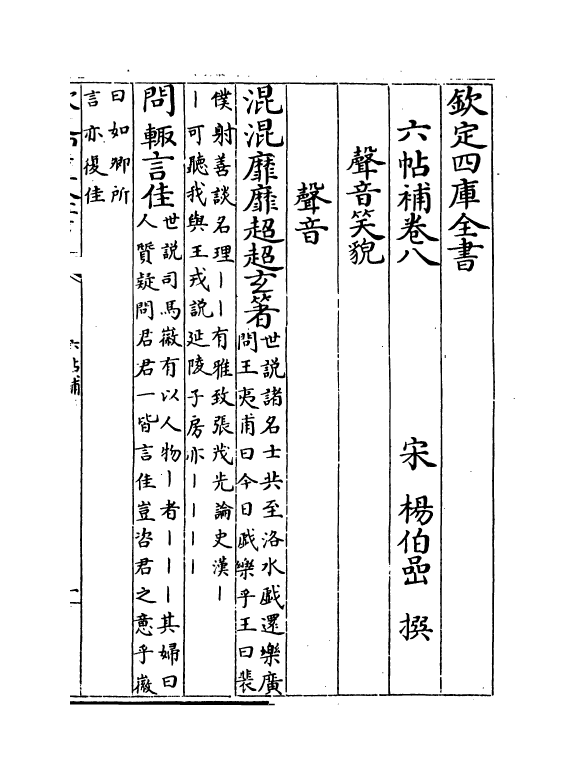 欽定四庫全書
六帖補卷八　宋　楊伯嵒　撰
聲音笑貌
聲音
混混靡靡超超玄著
世説諸名士共至洛水戲還樂廣
問王夷甫曰今日戲樂乎王曰裴
僕射善談名理丨丨有雅致張茂先論史漢丨
丨可聽我與王戎説延陵子房亦丨丨丨丨
問輒言佳
世説司馬徽有以人物丨者丨丨丨其婦曰
人質疑問君君一皆言佳豈咨君之意乎徽
曰如卿所
言亦復佳